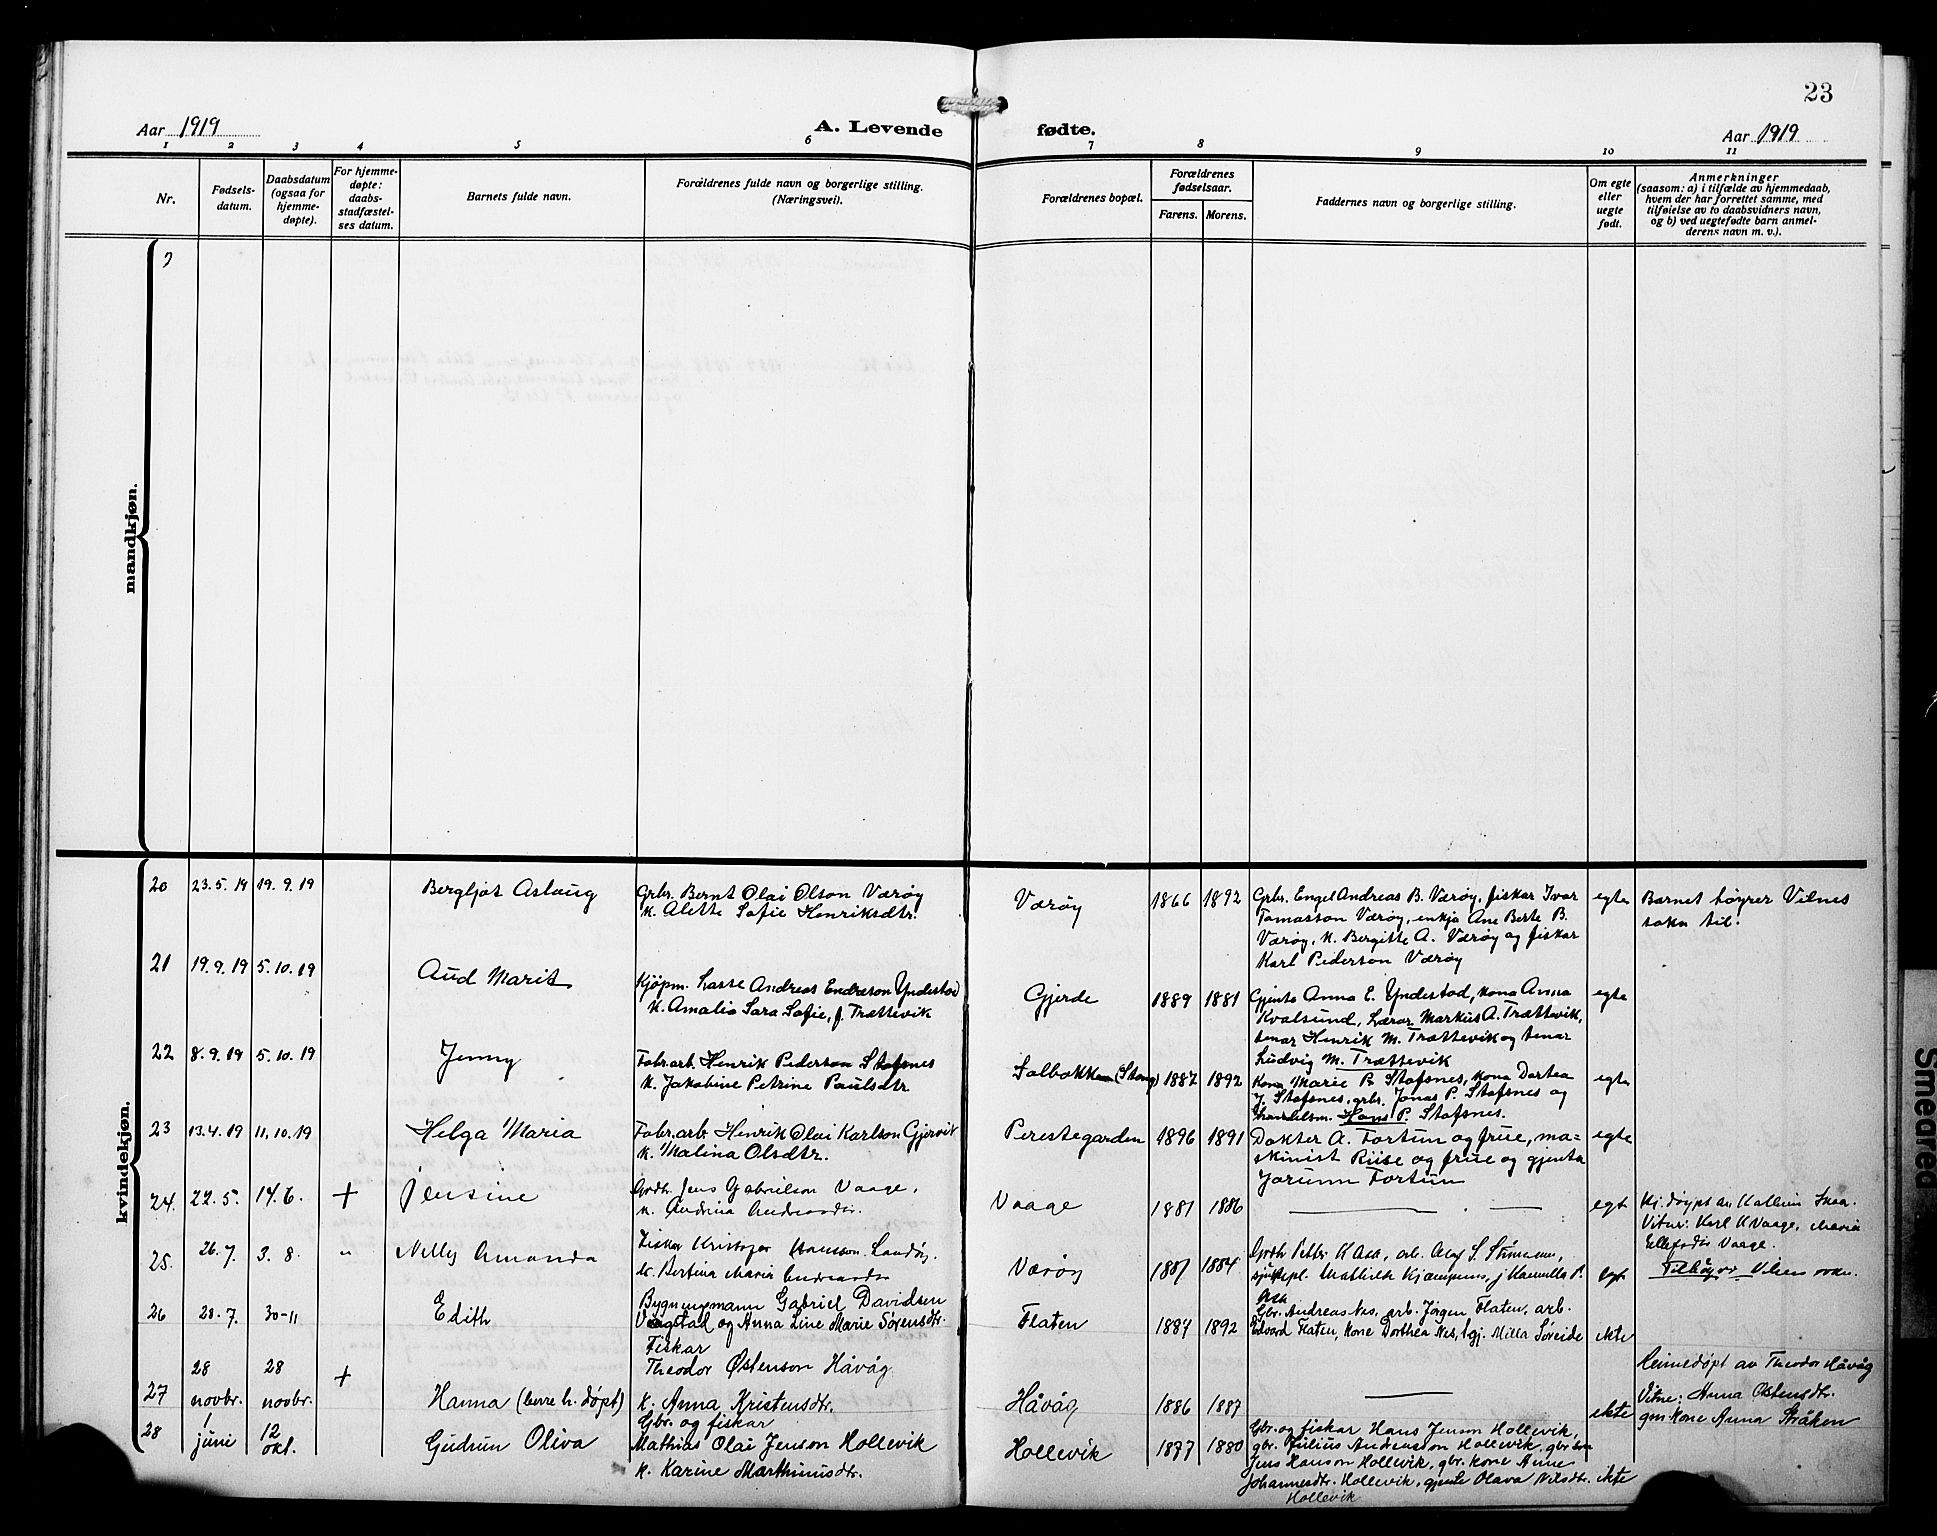 23
Aar 1919
A. Levende fødte.
Aar 1919
1 2 3 4 5 6 7 8 9 10 11
Nr.
Fødsels-
datum.
Daabsdatum
(ogsaa for
hjemme-
døpte).
For hjemme-
døpte:
daabs-
stadfæstel-
ses datum.
Barnets fulde navn.
Forældrenes fulde navn og borgerlige stilling.
(Næringsvei).
Forældrenes bopæl.
Forældrenes
fødselsaar.
Farens. Morens.
Faddernes navn og borgerlige stilling.
Om egte
eller
uegte
født.
Anmerkninger
(saasom: a) i tilfælde av hjemmedaab,
hvem der har forrettet samme, med
tilføielse av to daabsvidners navn,
og b) ved uegtefødte barn anmel-
derens navn m. v.).
mandkjøn.
kvindekjøn.
20 23.5.19 19.9.19 Bergljot Aslaug
Grbr. Bernt Olai Olson Værøy
k. Alette Sofie Henriksdtr.
Værøy 1866 1892
Grbr. Engel Andreas B. Værøy, fiskar Ivar
Tomasson Værøy, enkja Ane Berte B.
Værøy, k. Bergitte A. Værøy og fiskar
Karl Pederson Værøy
egte
Barnet høyrer Vilnes
sokn til.
21 19.9.19 5.10.19 Aud Marit
Kjøpm. Lasse Andreas Endreson Yndestad
k. Amalia Sara Sofie, f. Trættevik
Gjerde 1889 1881
Gjenta Anna E. Yndestad, kona Anna
Kvalsund, Lærar Markus A. Trættevik,
tenar Henrik M. Trættevik og tenar
Ludvig M. Trættevik
egte
22 8.9.19 5.10.19 Jenny
Fabr.arb. Henrik Pederson Stafsnes
k. Jakobine Petrine Paulsdtr.
Solbakken (Stong) 1887 1892
Kona Marie P. Stafsnes, kona Dortea
J. Stafsnes, grbr. Jonas P. Stafsnes og
handelsm. Hans P. Stafsnes.
egte
23 13.4.19 11.10.19 Helga Maria
Fabr.arb. Henrik Olai Karlson Gjervik
k. Malina Olsdtr.
Perestegarden 1896 1891
Dokter A. Fortun og frue, ma=
skinist Riise og frue og gjenta
Jorunn Fortun
egte
24. 22.5. 14.6. + Jensine
Grdbr. Jens Gabrielson Vaage.
k. Andrina Andreasdtr.
Vaage 1881 1886
egt
Hj. døypt av Kathrin Skaa.
Vitne: Karl K Vaage, Maria
Ellefsdtr Vaage.
25. 26.7. 3.8. " Nelly Amanda
Fiskar Kristofer Hansson Landøy.
k. Bertina Maria Andreasdtr
Værøy 1881 1884
Grdbr Petter K Asa, arb. Olaf S.
sjukepl. Mathilde Kjempenes, j Kamilla P.
Asa
egt
Tilhøyrer Vilnes sokn.
26 28.7. 30-11 Edith
Bygningsmann Gabriel Davidsen
Vågstad og Anna Line Marie Sørensdtr.
Flaten 1884 1892
Gbr. Andreas Nes, arb. Jørgen Flaten, arb.
Edvard Flaten, kone Dorthea Nes, ugj. Milla Søreide
ekte
27 28 novbr. 28 novbr. + Hanna (berre h. døpt)
Fiskar
Theodor Østenson Håvåg
k. Anna Kristensdtr.
Håvåg 1886 1887
ekte
Heimedøpt av Theodor Håvåg
Vitne: Anna Østensdtr.
gm. kone Anna Stråken
28 1 juni 12 okt. Gudrun Oliva
Gbr. og fiskar
Mathias Olai Jenson Hollevik
k. Karine Marthinusdtr.
Hollevik 1877 1880
Gbr. og fiskar Hans Jenson Hollevik,
gbr. Julius Andreasson Hollevik, gbr. son
Jens Hanson Hollevik, gbr. kone Anne
Johannesdtr. Hollevik, gjente Olava Nilsdtr.
Hollevik
ekte
Smeared